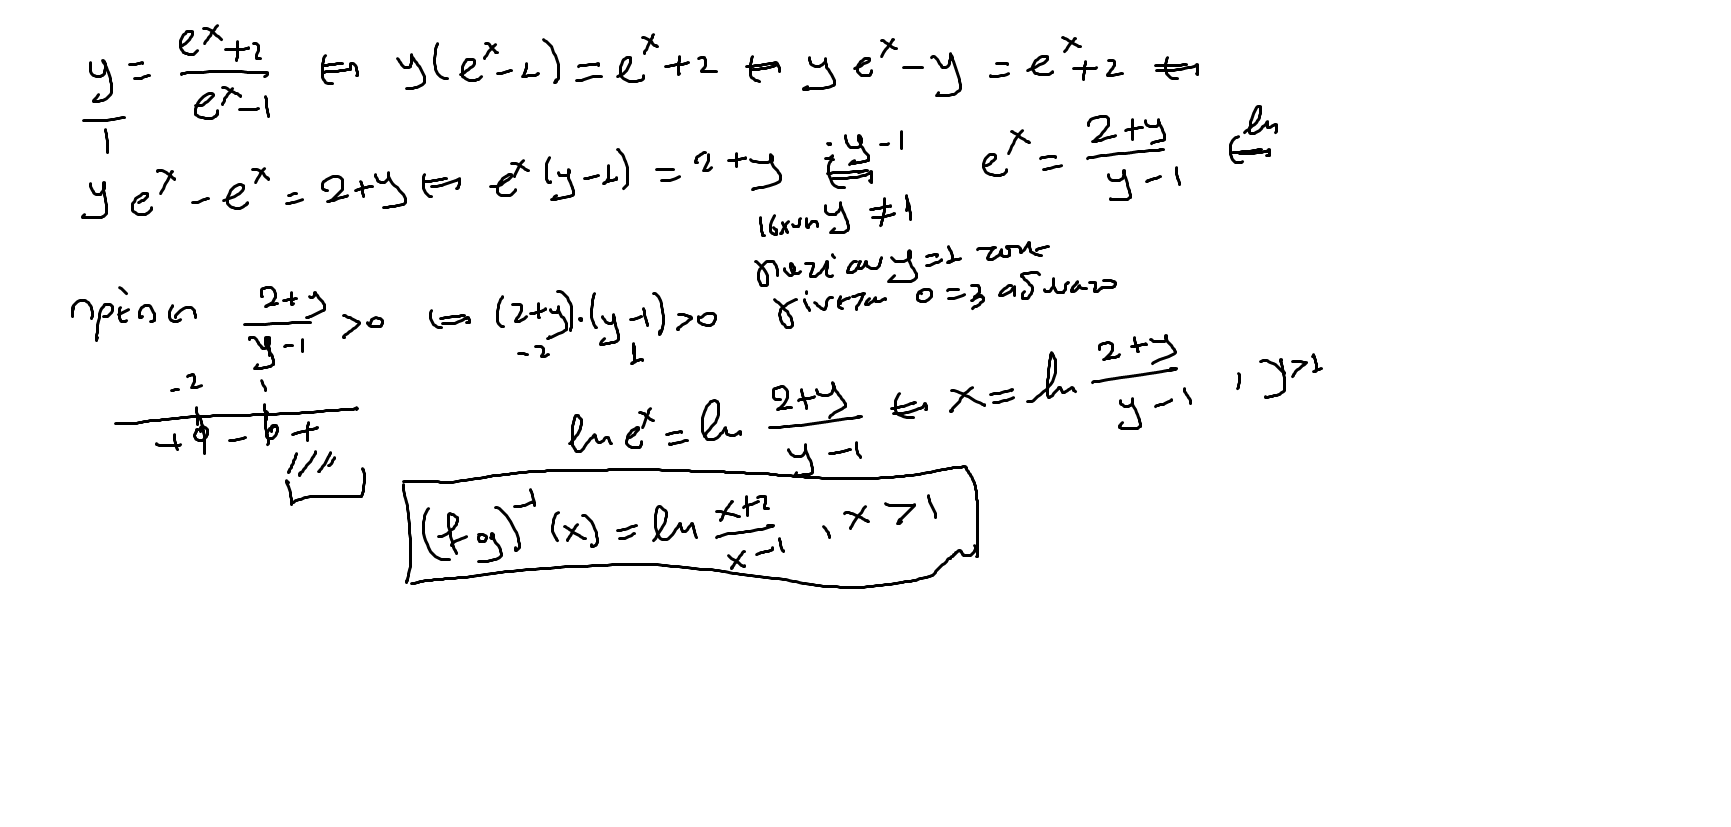 y/1 = (e^x+2)/(e^x-1) ⇔ y(e^x-1) = e^x+2 ⇔ y e^x - y = e^x+2 ⇔
y e^x - e^x = 2+y ⇔ e^x (y-1) = 2+y ⇔ :y-1 e^x = (2+y)/(y-1) ⇔ ln
ισχυει y ≠ 1
γιατί αν y=1 τοτε
γίνεται 0=3 αδυνατο
πρέπει (2+y)/(y-1) >0 ⇔ (2+y)·(y-1)>0
-2 1
-2 1
+ 0 - 0 +
ln e^x = ln (2+y)/(y-1) ⇔ x = ln (2+y)/(y-1) , y>1
(fog)^-1 (x) = ln (x+2)/(x-1) , x > 1